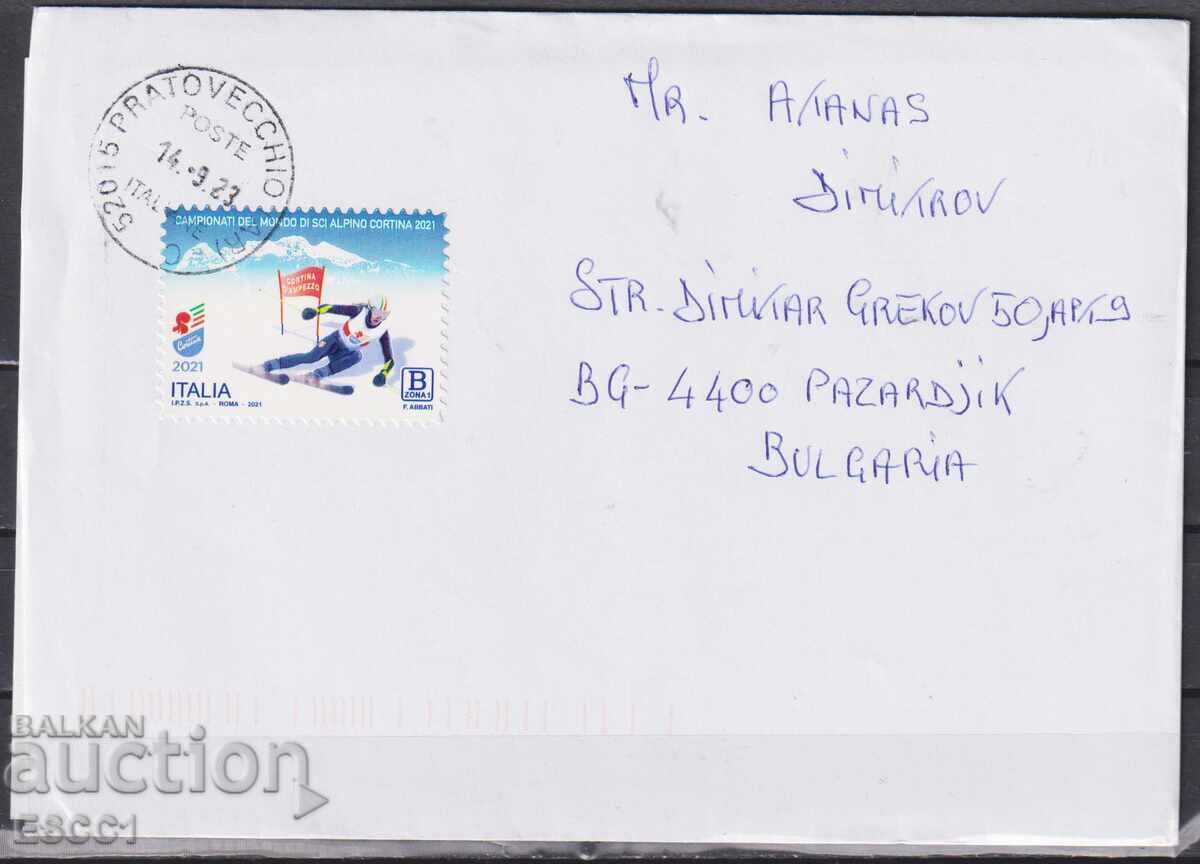 52015 PRATOVECCHIO
POSTE
14.-9.23
CAMPIONATI DEL MONDO DI SCI ALPINO CORTINA 2021
CORTINA
D'AMPEZZO
Cortina
2021
ITALIA
B
ZONA 1
I.P.Z.S. S.p.A. - ROMA - 2021
F. ABBATI
MR. ATANAS
DIMITROV
STR. DIMITAR GREKOV 50, AP. 9
BG-4400 PAZARDJIK
BULGARIA
BALKAN
auction
ESCC1